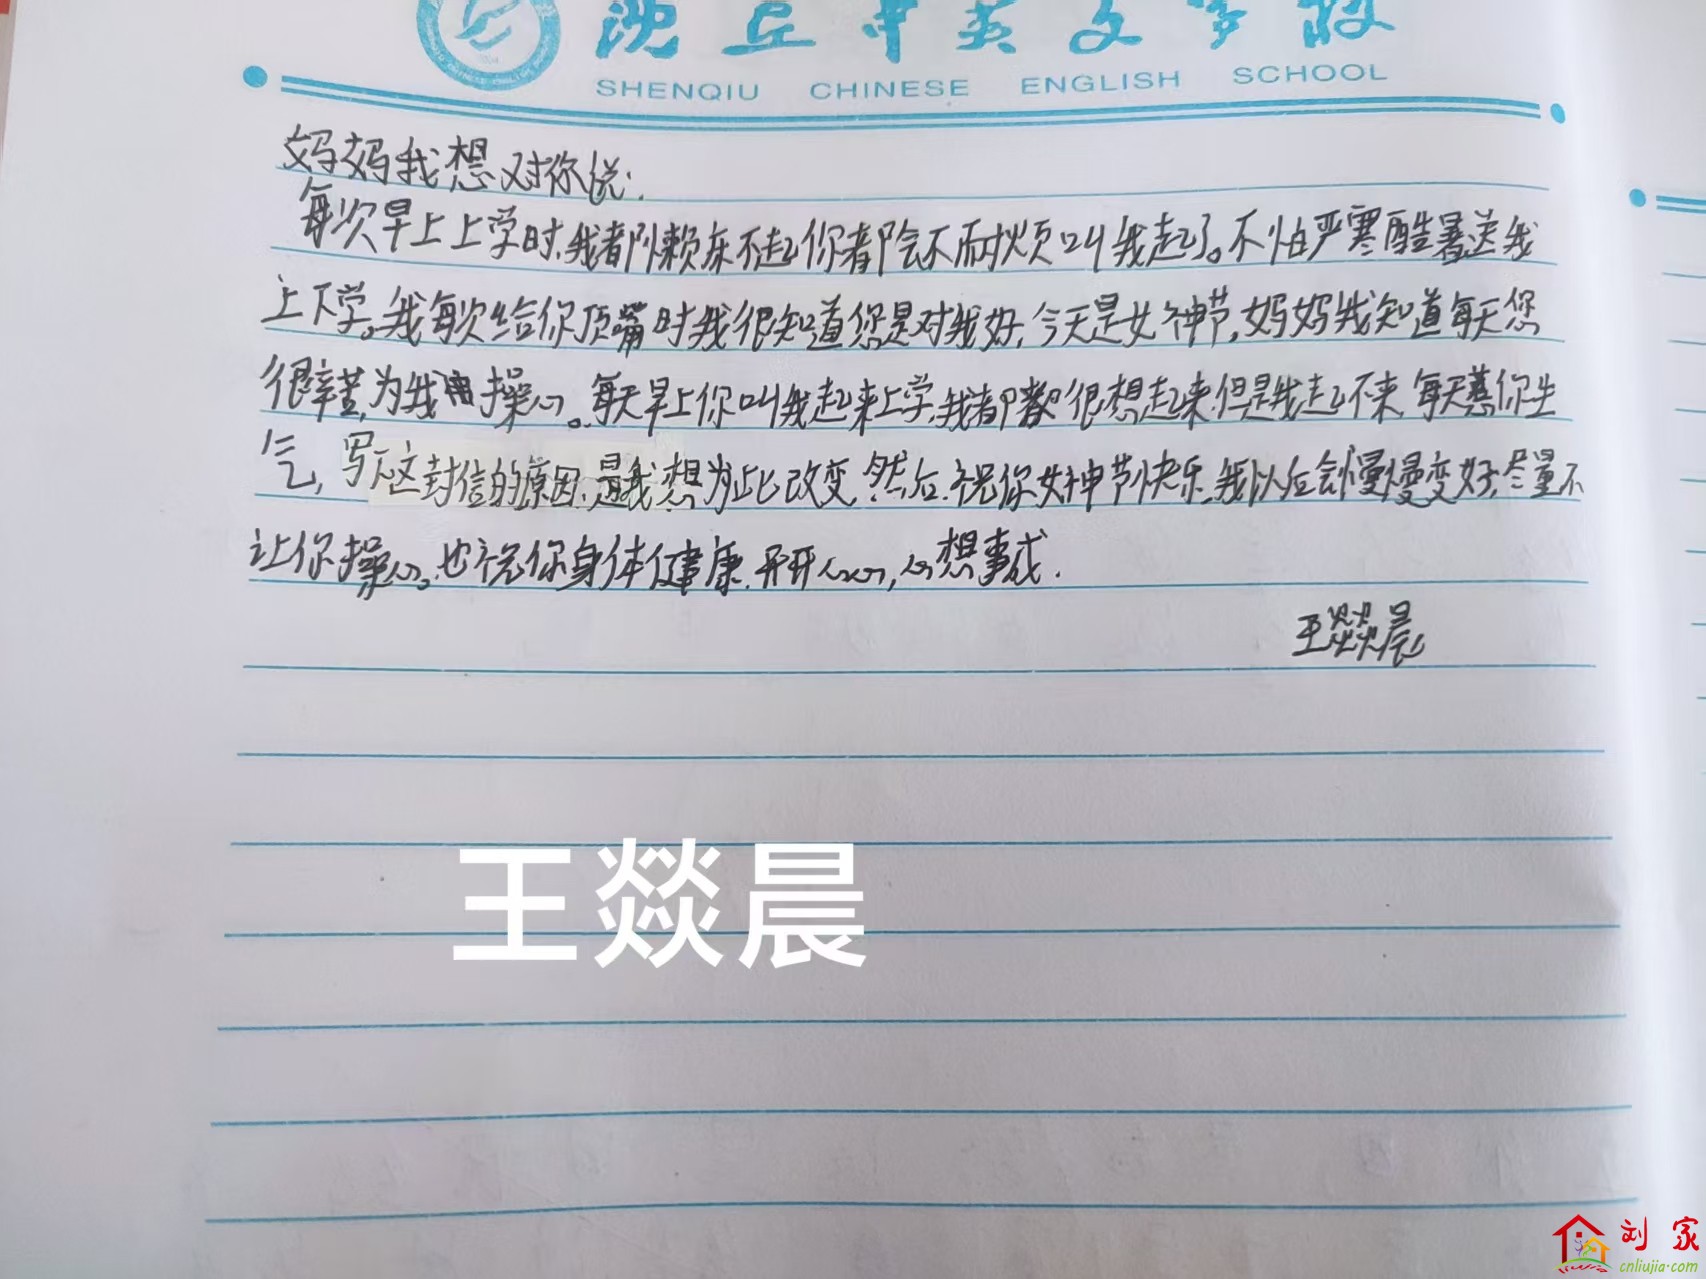 沈丘中英文学校
SHENQIU CHINESE ENGLISH SCHOOL
妈妈我想对你说:
每次早上上学时,我都赖床不起你都会不耐烦叫我起了。不怕严寒酷暑送我
上下学。我每次给你顶嘴时我很知道您是对我好,今天是女神节,妈妈我知道每天您
很辛苦,为我操心。每天早上你叫我起来上学,我都很想起来,但是我起不来,每天惹你生
气,写下这封信的原因,是我想为此改变,然后,祝你女神节快乐,我以后会慢慢变好,尽量不
让你操心。也祝你身体健康,开开心心,心想事成.
王燚晨
王燚晨
刘家
cnliujia.com